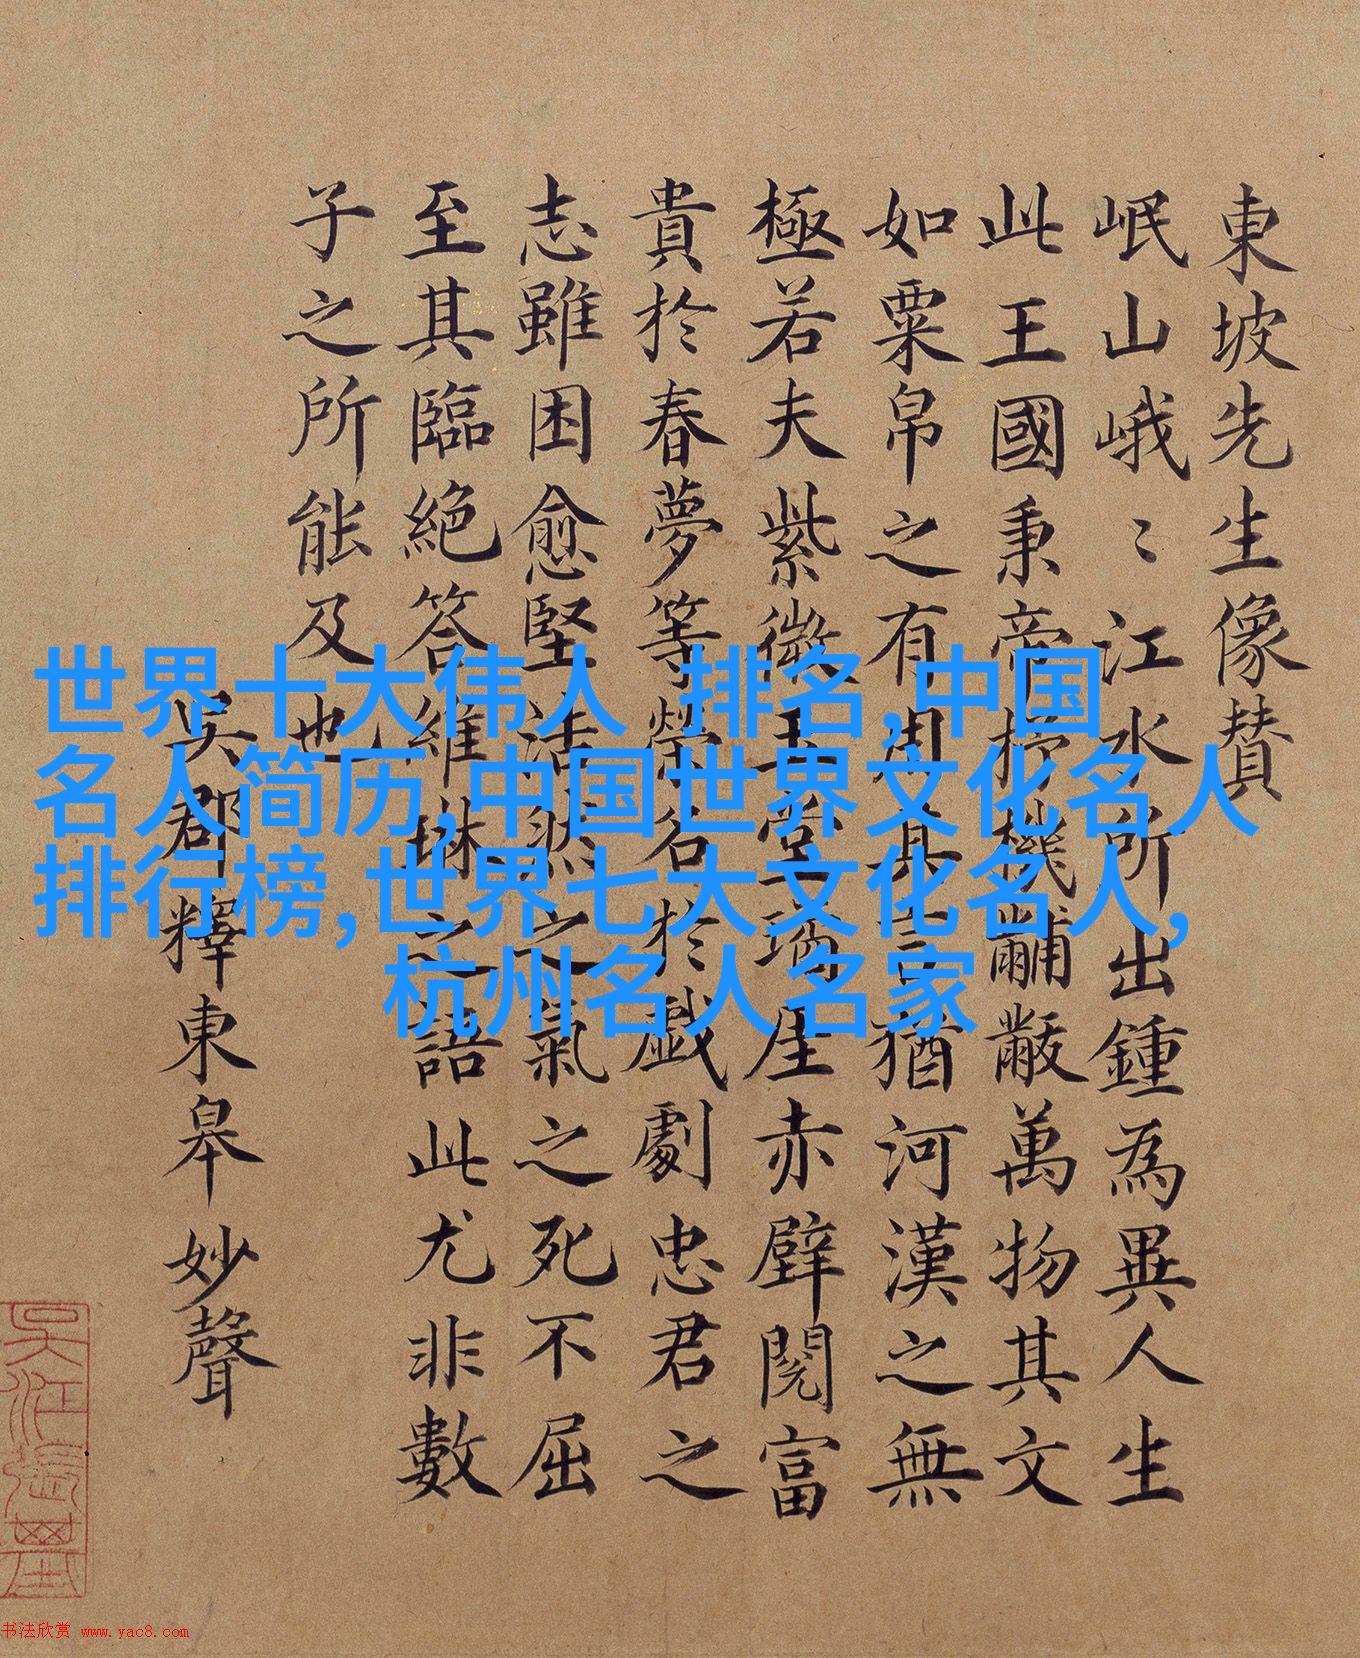 東坡先生像贊
岷山峨〻江水所出鍾為異人生
此王國秉帝杼機黼黻萬物其文
如粟帛之有用其言猶河漢之無
極若夫紫微玉堂瓊崖赤壁閱富
貴於春夢等榮名於戲劇忠君之
志雖困愈堅浩然之氣之死不屈
至其臨絕答維琳之語此尤非數
子之所能及也
吳郡釋東皋妙聲
世界十大伟人 排名,中国
名人简历,中国世界文化名人
排行榜,世界七大文化名人,
杭州名人名家
书法欣赏 www.yac8.com